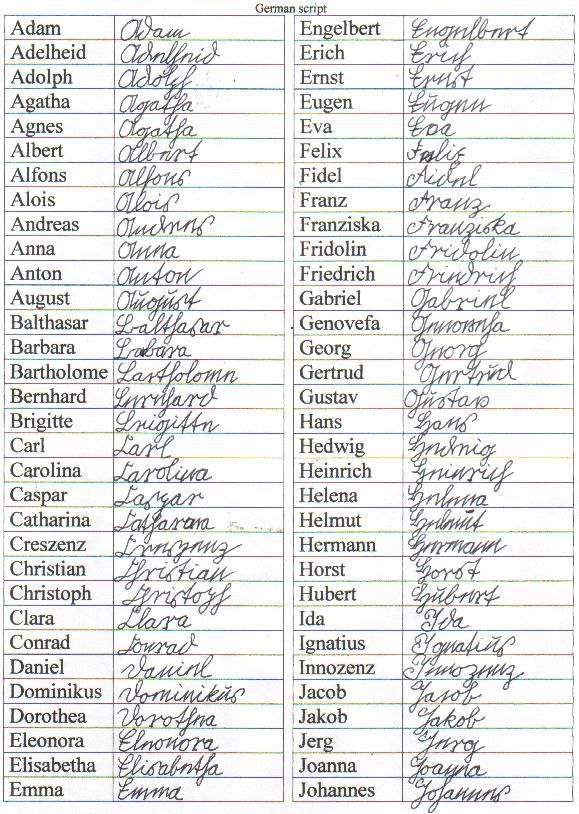 German script
Adam Adam
Adelheid Adelheid
Adolph Adolph
Agatha Agatha
Agnes Agatha
Albert Albert
Alfons Alfons
Alois Alois
Andreas Andreas
Anna Anna
Anton Anton
August August
Balthasar Balthasar
Barbara Babara
Bartholome Bartholome
Bernhard Bernhard
Brigitte Brigitte
Carl Carl
Carolina Carolina
Caspar Caspar
Catharina Catharina
Creszenz Creszenz
Christian Christian
Christoph Christoph
Clara Clara
Conrad Conrad
Daniel Daniel
Dominikus Dominikus
Dorothea Dorothea
Eleonora Eleonora
Elisabetha Elisabetha
Emma Emma
Engelbert Engelbert
Erich Erich
Ernst Ernst
Eugen Eugen
Eva Eva
Felix Felix
Fidel Fidel
Franz Franz
Franziska Franziska
Fridolin Fridolin
Friedrich Friedrich
Gabriel Gabriel
Genovefa Genovefa
Georg Georg
Gertrud Gertrud
Gustav Gustav
Hans Hans
Hedwig Hedwig
Heinrich Heinrich
Helena Helena
Helmut Helmut
Hermann Hermann
Horst Horst
Hubert Hubert
Ida Ida
Ignatius Ignatius
Innozenz Innozenz
Jacob Jacob
Jakob Jakob
Jerg Jerg
Joanna Joanna
Johannes Johannes